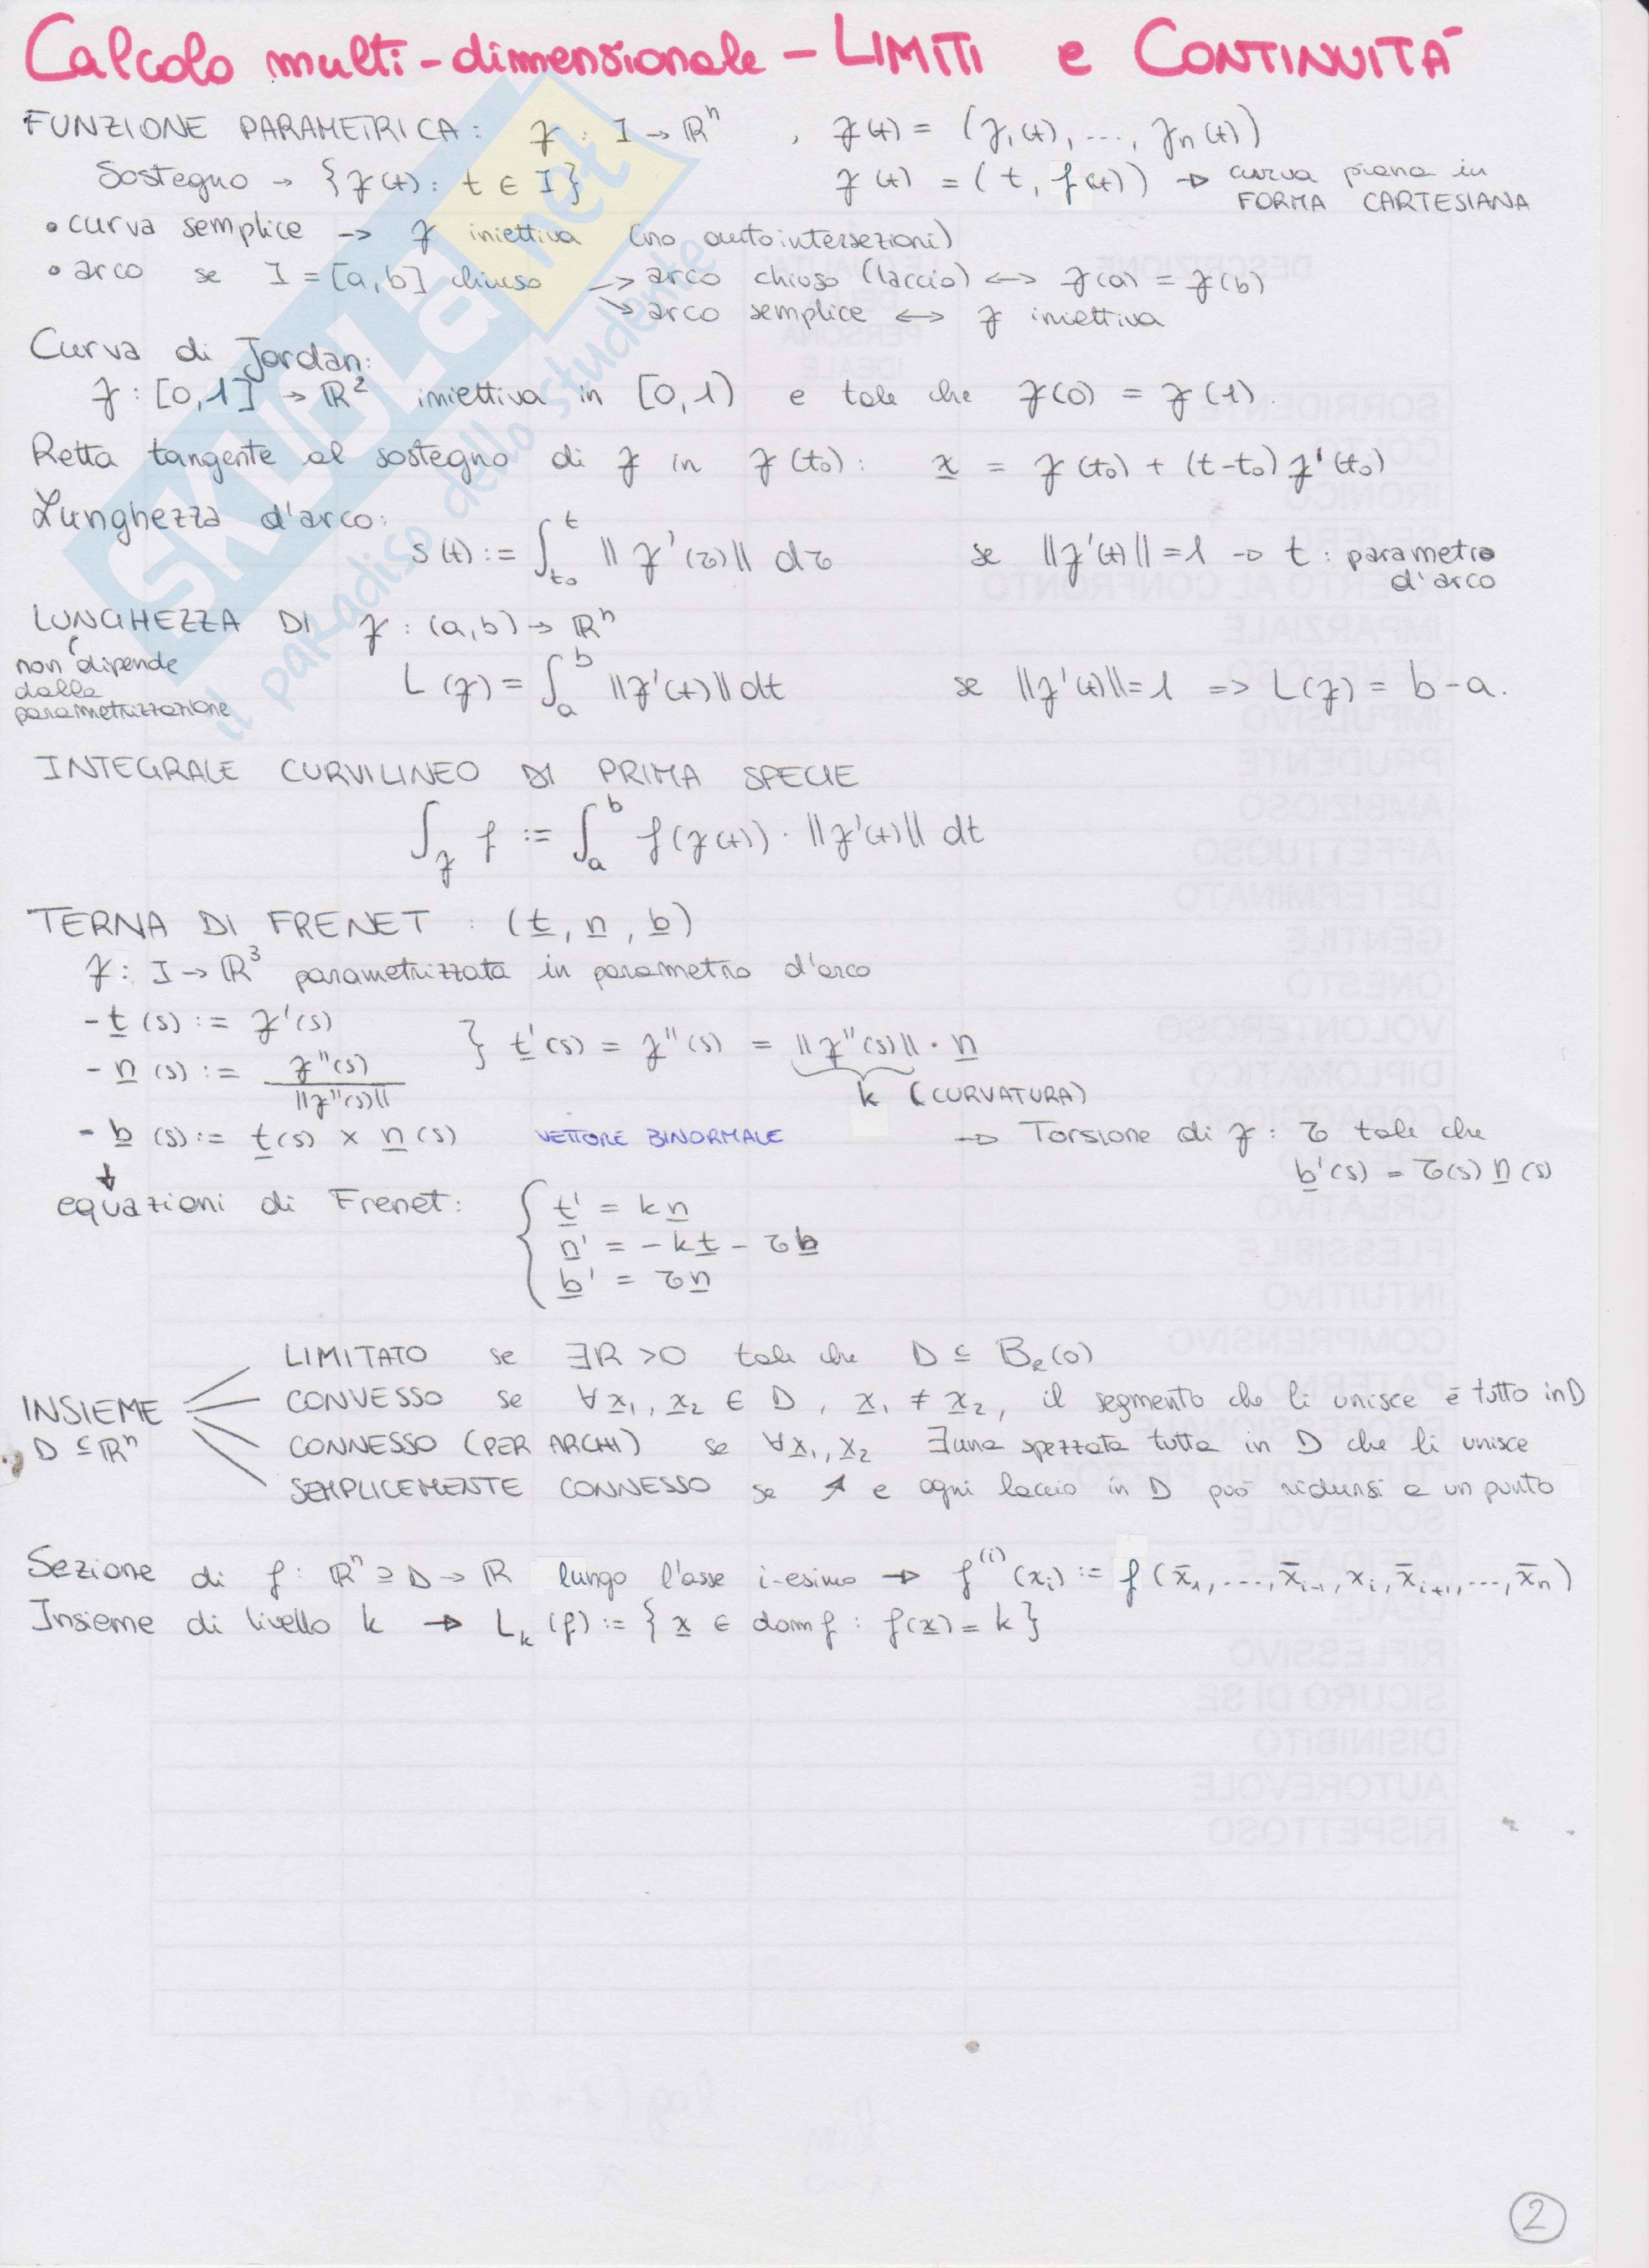 Calcolo multi-dimensionale - LIMITI e CONTINUITÀ
FUNZIONE PARAMETRICA: γ : I → ℝⁿ , γ(t) = (γ₁(t), ..., γₙ(t))
Sostegno → {γ(t) : t ∈ I} γ(t) = (t, f(t)) → curva piana in
FORMA CARTESIANA
• curva semplice → γ iniettiva (no autointersezioni)
• arco se I = [a,b] chiuso → arco chiuso (laccio) ↔ γ(a) = γ(b)
→ arco semplice ↔ γ iniettiva
Curva di Jordan:
γ : [0,1] → ℝ² iniettiva in [0,1) e tale che γ(0) = γ(1).
Retta tangente al sostegno di γ in γ(t₀) : x = γ(t₀) + (t-t₀) γ'(t₀)
Lunghezza d'arco:
s(t) := ∫_{t₀}^{t} ||γ'(τ)|| dτ se ||γ'(t)|| = 1 → t : parametro
d'arco
LUNGHEZZA DI γ : (a,b) → ℝⁿ
non dipende
dalla
parametrizzazione
L(γ) = ∫_a^b ||γ'(t)|| dt se ||γ'(t)|| = 1 => L(γ) = b-a.
INTEGRALE CURVILINEO DI PRIMA SPECIE
∫_γ f := ∫_a^b f(γ(t)) · ||γ'(t)|| dt
TERNA DI FRENET : (t, n, b)
γ : I → ℝ³ parametrizzata in parametro d'arco
- t(s) := γ'(s)
- n(s) := γ''(s) / ||γ''(s)||
} t'(s) = γ''(s) = ||γ''(s)|| · n
k (CURVATURA)
- b(s) := t(s) × n(s) VETTORE BINORMALE → Torsione di γ : τ tale che
b'(s) = τ(s) n(s)
↓
equazioni di Frenet: { t' = k n
n' = -k t - τ b
b' = τ n
INSIEME
D ⊆ ℝⁿ
LIMITATO se ∃R > 0 tale che D ⊆ B_R(0)
CONVESSO se ∀ x₁, x₂ ∈ D, x₁ ≠ x₂, il segmento che li unisce è tutto in D
CONNESSO (PER ARCHI) se ∀ x₁, x₂ ∃ una spezzata tutta in D che li unisce
SEMPLICEMENTE CONNESSO se ↗ e ogni laccio in D può ridursi a un punto
Sezione di f : ℝⁿ ⊇ D → ℝ lungo l'asse i-esimo → f⁽ⁱ⁾(xᵢ) := f(x̄₁, ..., x̄ᵢ₋₁, xᵢ, x̄ᵢ₊₁, ..., x̄ₙ)
Insieme di livello k → L_k(f) := {x ∈ dom f : f(x) = k}
2
SKUOLA.net
il paradiso dello studente